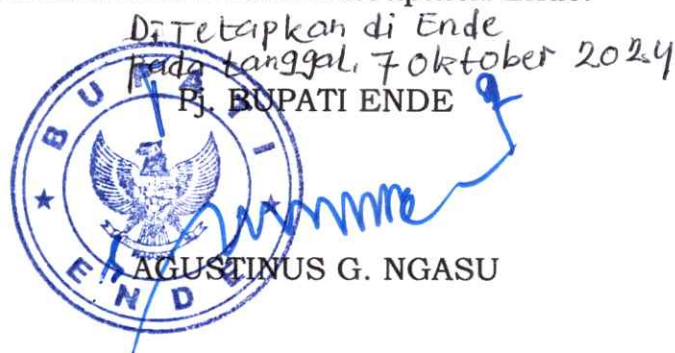 Ditetapkan di Ende
pada tanggal, 7 Oktober 2024
Pj. BUPATI ENDE
BUPATI
ENDE
AGUSTINUS G. NGASU